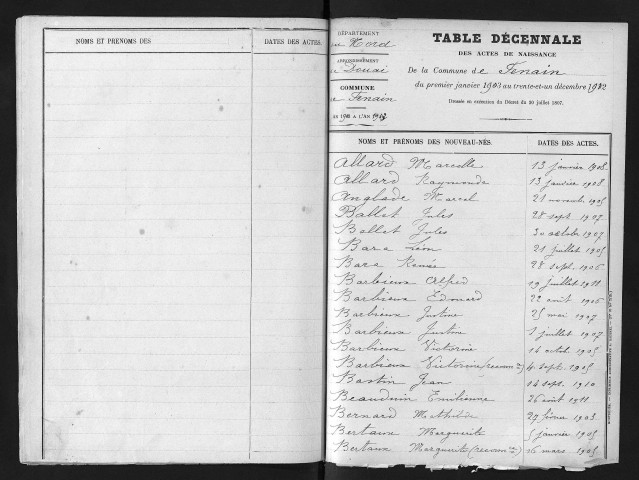 NOMS ET PRÉNOMS DES
DATES DES ACTES.
DÉPARTEMENT
du Nord
ARRONDISSEMENT
Douai
COMMUNE
de Fenain
TABLE DÉCENNALE
DES ACTES DE NAISSANCE
De la Commune de Fenain
du premier janvier 1903 au trente-et-un décembre 1912
Dressée en exécution du Décret du 20 juillet 1807.
NOMS ET PRÉNOMS DES NOUVEAU-NÉS.
DATES DES ACTES.
Allard Marcelle 13 janvier 1908
Allard Raymonde 13 janvier 1908
Anglade Marcel 21 novembre 1905
Ballet Jules 28 sept 1907
Bellet Jules 30 octobre 1907
Bara Léon 21 juillet 1905
Bara Renée 28 sept. 1906
Barbieux Alfred 19 juillet 1911
Barbieux Edouard 22 août 1906
Barbieux Justine 25 mai 1907
Barbieux Justine 1 juillet 1907
Barbieux Victorine 14 octob. 1905
Barbieux Victorine (reconn ce) 4 sept. 1905
Bastin Jean 14 sept. 1910
Beauduin Emilienne 26 août 1911
Bernard Mathilde 29 février 1903
Bertaux Marguerite 5 janvier 1905
Bertaux Marguerite (reconn ce) 6 mars 1905